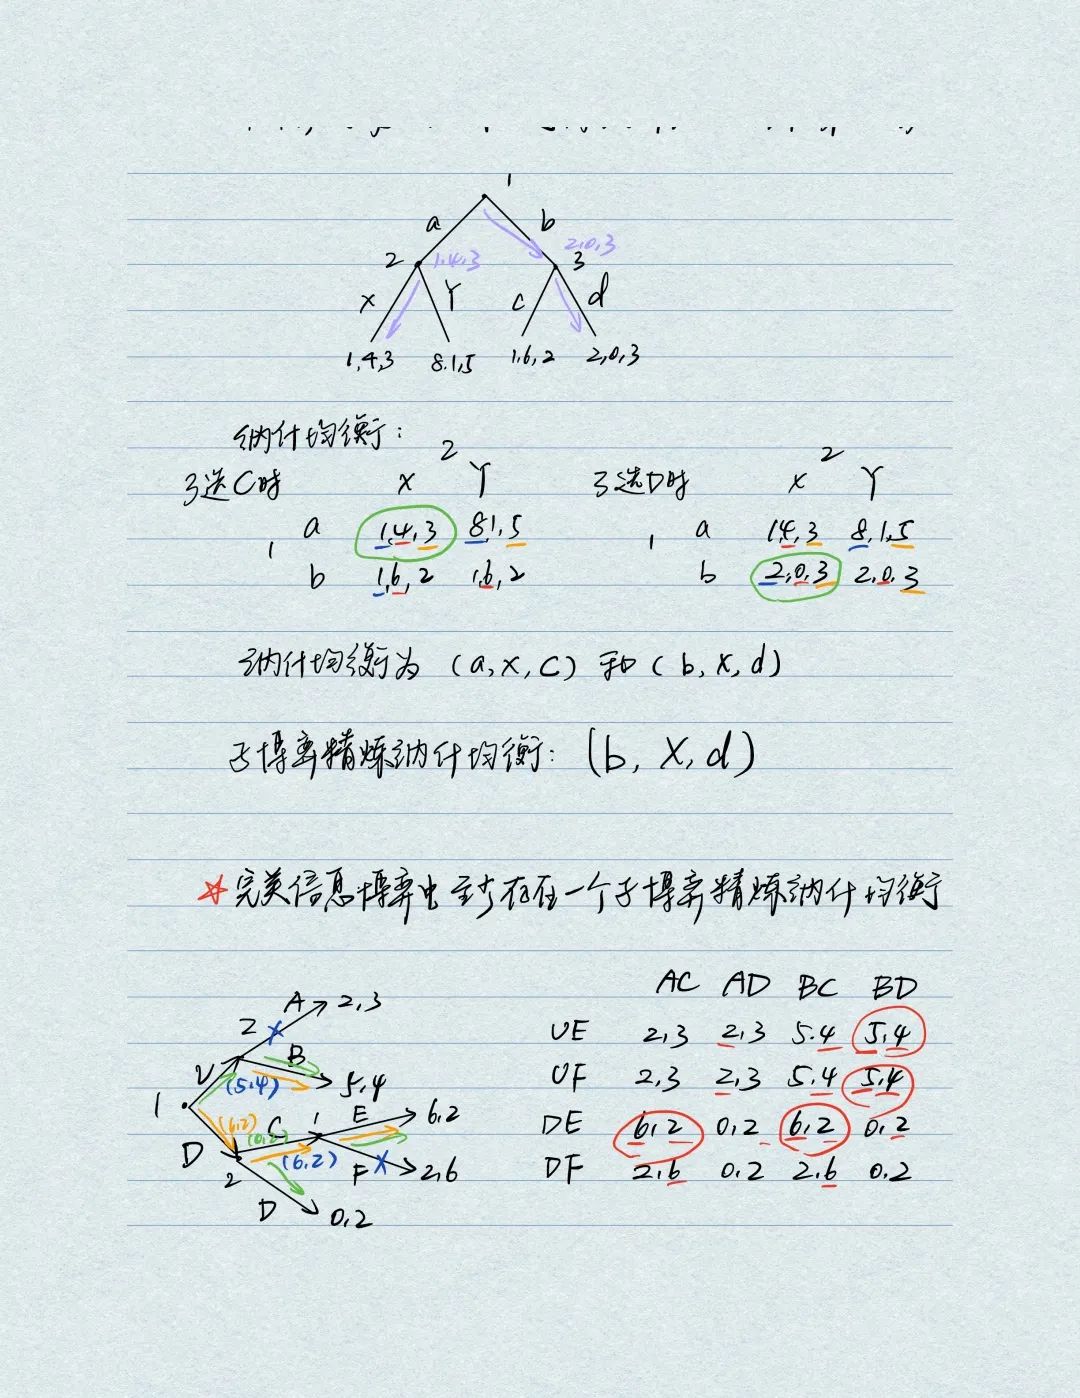 1
a b
2 1,4,3 2,0,3 3
x Y c d
1,4,3 8,1,5 1,6,2 2,0,3
纳什均衡:
3选C时 2 3选D时 2
x Y x Y
1 a 1,4,3 8,1,5 1 a 1,4,3 8,1,5
b 1,6,2 1,6,2 b 2,0,3 2,0,3
纳什均衡为 (a,x,c) 和 (b,x,d)
子博弈精炼纳什均衡: (b,x,d)
☆完美信息博弈中至少存在一个子博弈精炼纳什均衡
A 2,3
2
B
U (5,4) 5,4
1 (6,2) (0,2) C 1 E 6,2
D (6,2)
2 F 2,6
D 0,2
AC AD BC BD
UE 2,3 2,3 5,4 5,4
UF 2,3 2,3 5,4 5,4
DE 6,2 0,2 6,2 0,2
DF 2,6 0,2 2,6 0,2